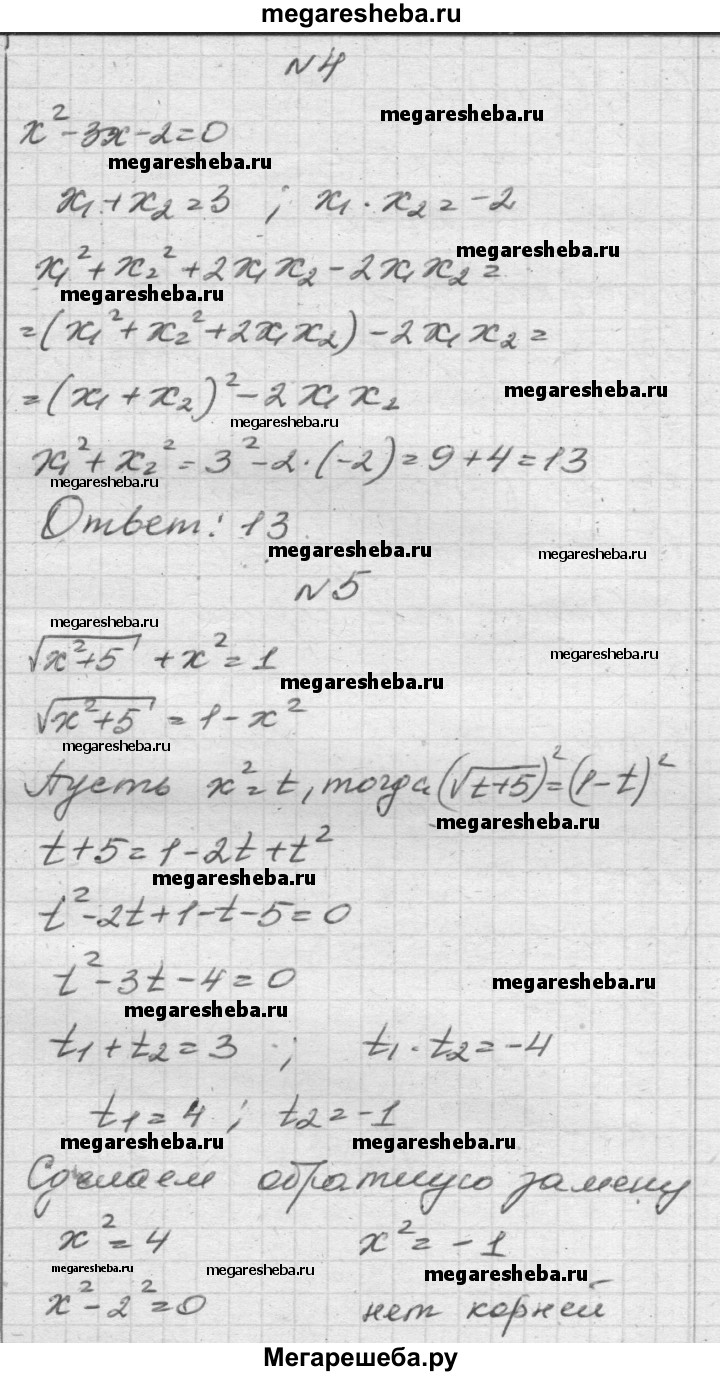 megaresheba.ru
№4
megaresheba.ru
x²-3x-2=0
megaresheba.ru
x₁+x₂=3 ; x₁·x₂=-2
megaresheba.ru
x₁²+x₂²+2x₁x₂-2x₁x₂=
megaresheba.ru
=(x₁²+x₂²+2x₁x₂)-2x₁x₂=
megaresheba.ru
=(x₁+x₂)²-2x₁x₂
megaresheba.ru
x₁²+x₂²=3²-2·(-2)=9+4=13
megaresheba.ru
Ответ: 13
megaresheba.ru
megaresheba.ru
№5
megaresheba.ru
√(x²+5)+x²=1
megaresheba.ru
megaresheba.ru
√(x²+5)=1-x²
megaresheba.ru
Пусть x²=t, тогда (√(t+5))²=(1-t)²
megaresheba.ru
t+5=1-2t+t²
megaresheba.ru
t²-2t+1-t-5=0
t²-3t-4=0
megaresheba.ru
megaresheba.ru
t₁+t₂=3 ; t₁·t₂=-4
t₁=4 ; t₂=-1
megaresheba.ru megaresheba.ru
Сделаем обратную замену
x²=4 x²=-1
megaresheba.ru megaresheba.ru megaresheba.ru
x²-2²=0 нет корней
Мегарешеба.ру